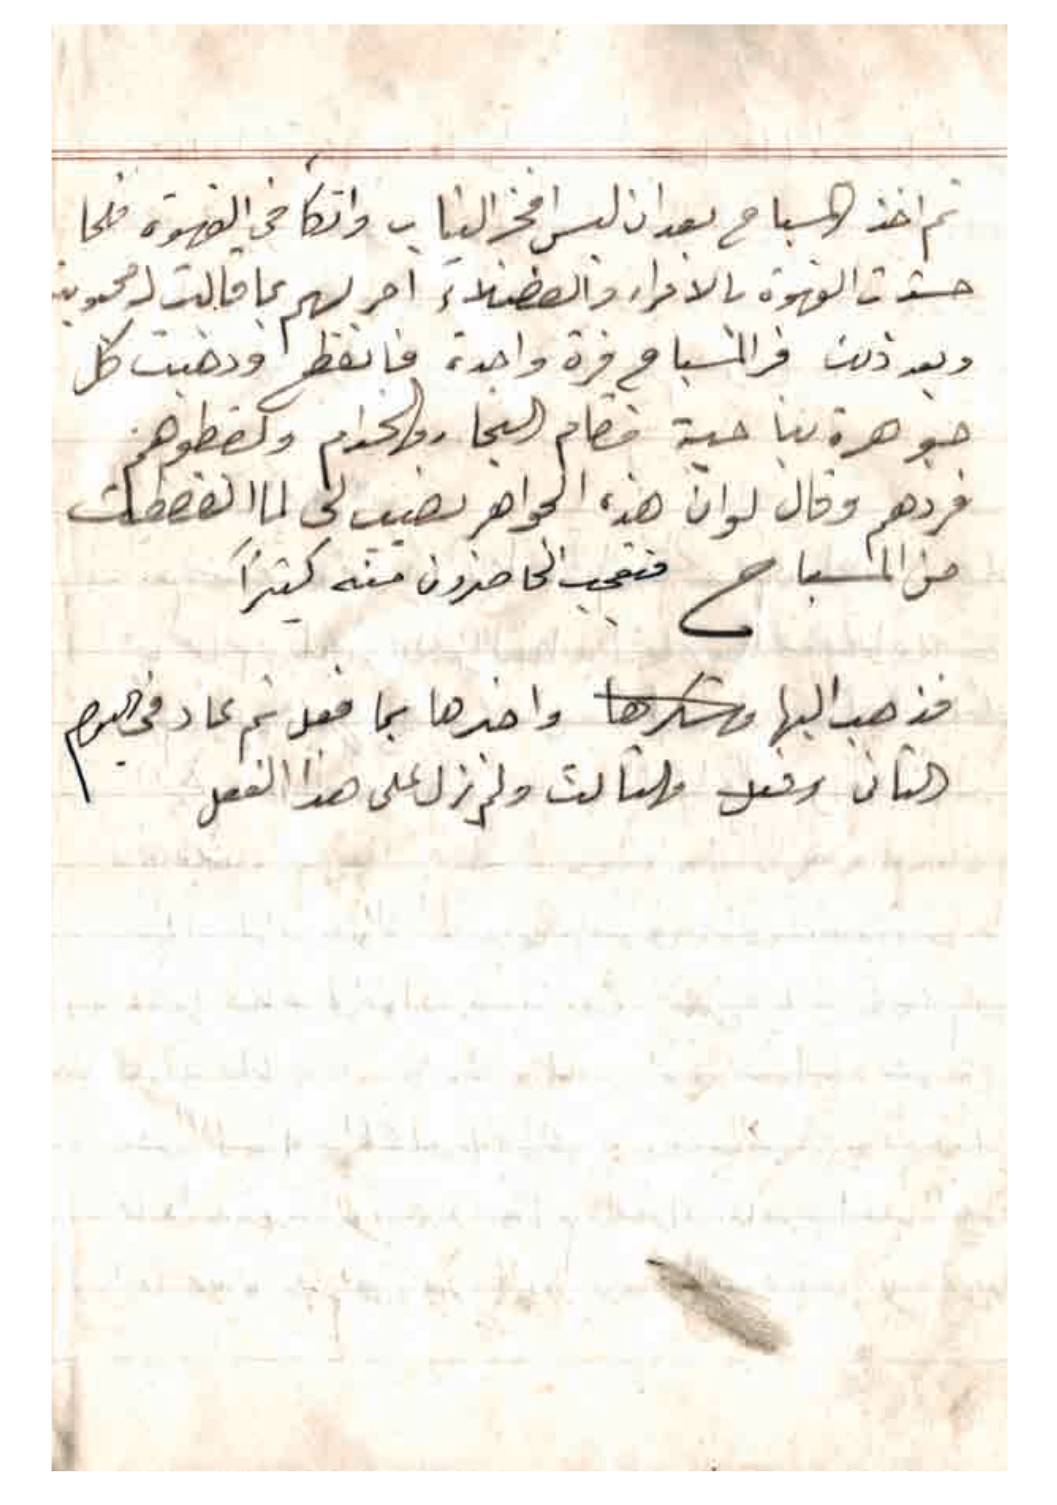 ثم اخذ المسباح بعد ان لبس افخر الثياب واتكأ في القهوة فلما
حشدت القهوة بالامراء والفضلاء امر لهم بما قالت له محبوبته
وبعد ذلك فر المسباح فرة واحدة فانفظ وذهبت كل
جوهرة بناحية فقام التجار والخدام ولقطوهم
فردهم وقال لوان هذه الجواهر نصيب لى لما انفصلت
من المسباح فتعجب الحاضرون منه كثيراً
فذهب اليها وشكرها واخبرها بما فعل ثم عاد في اليوم
الثانى وفعل والثالث ولم زل على هذا الفعل